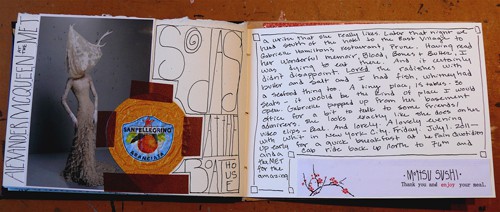 ALEXANDER MCQUEEN @ THE MET
COAST
SANPELLEGRINO
ARANCIATA
BOATHOUSE
a writer that she really likes. Later that night we
head south of the hotel to the East Village to
Gabrielle Hamilton's restaurant, Prune. Having read
her wonderful memoir, Blood, Bones & Butter, I
was dying to eat there. And it certainly
didn't disappoint. Loved the radishes with
butter and salt and I had fish, whitney had
a seafood thing too. A tiny place, 15 tables. 30
seats, it would be the kind of place I would
love. Gabrielle popped up from her basement
office for a bit to talk to some friends/
admirers. She looks exactly like she does on her
video clips - Real. And lovely. A lovely evening
with Whit in New York City. Friday, July 1. 2011 -
Up early for a quick breakfast at Le Pain Quotidien
and a cab ride back up north to 79th and
the MET
for the
amazing
MMitSU SUSHI
Thank you and enjoy your meal.